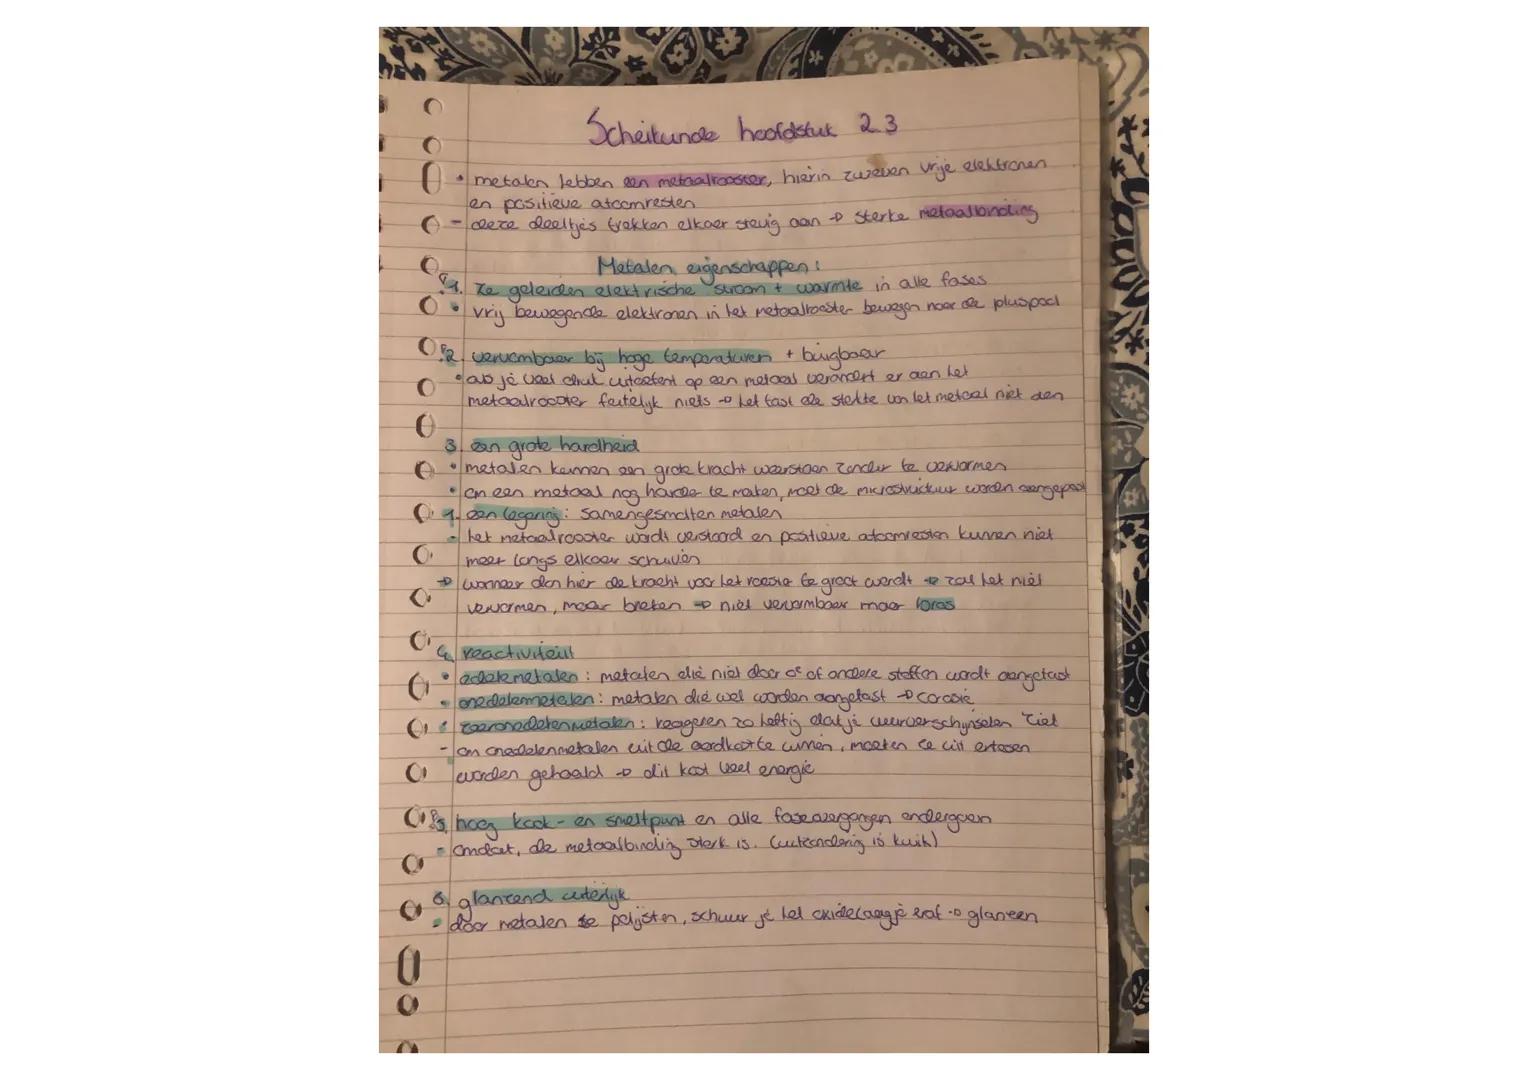 Scheikunde hoofdstuk 2.3
• metalen hebben een metaalrooster, hierin zweven vrije elektronen
en positieve atoomresten
- deze deeltjes trekken elkaar stevig aan → sterke metaalbinding
Metalen eigenschappen:
1. Ze geleiden elektrische stroom + warmte in alle fases
• vrij bewegende elektronen in het metaalrooster bewegen naar de pluspool
2. vervormbaar bij hoge temperaturen + buigbaar
• als je veel druk uitoefent op een metaal verandert er aan het
metaalrooster feitelijk niets → het tast de sterkte van het metaal niet aan
3. een grote hardheid
• metalen kunnen een grote kracht weerstaan zonder te vervormen
• om een metaal nog harder te maken, moet de microstructuur worden aangepast
1. een legering: samengesmolten metalen
- het metaalrooster wordt verstoord en positieve atoomresten kunnen niet
meer langs elkaar schuiven
→ wanneer dan hier de kracht voor het rooster te groot wordt → zal het niet
vervormen, maar breken → niet vervormbaar maar bros
4. reactiviteit
• edelemetalen: metalen die niet door of andere stoffen wordt aangetast
• onedelemetalen: metalen die wel worden aangetast → corosie
• zeeronedelenmetalen: reageren zo heftig dat je vuurverschijnselen ziet
- om onedelenmetalen uit de aardkorst te winnen, moeten ze uit ertsen
worden gehaald → dit kost veel energie
5. hoog kook- en smeltpunt en alle faseovergangen ondergaan
- omdat, de metaalbinding sterk is. (uitzondering is kwik)
6. glanzend uiterlijk
- door metalen te polijsten, schuur je het oxidelaagje eraf → glanzen